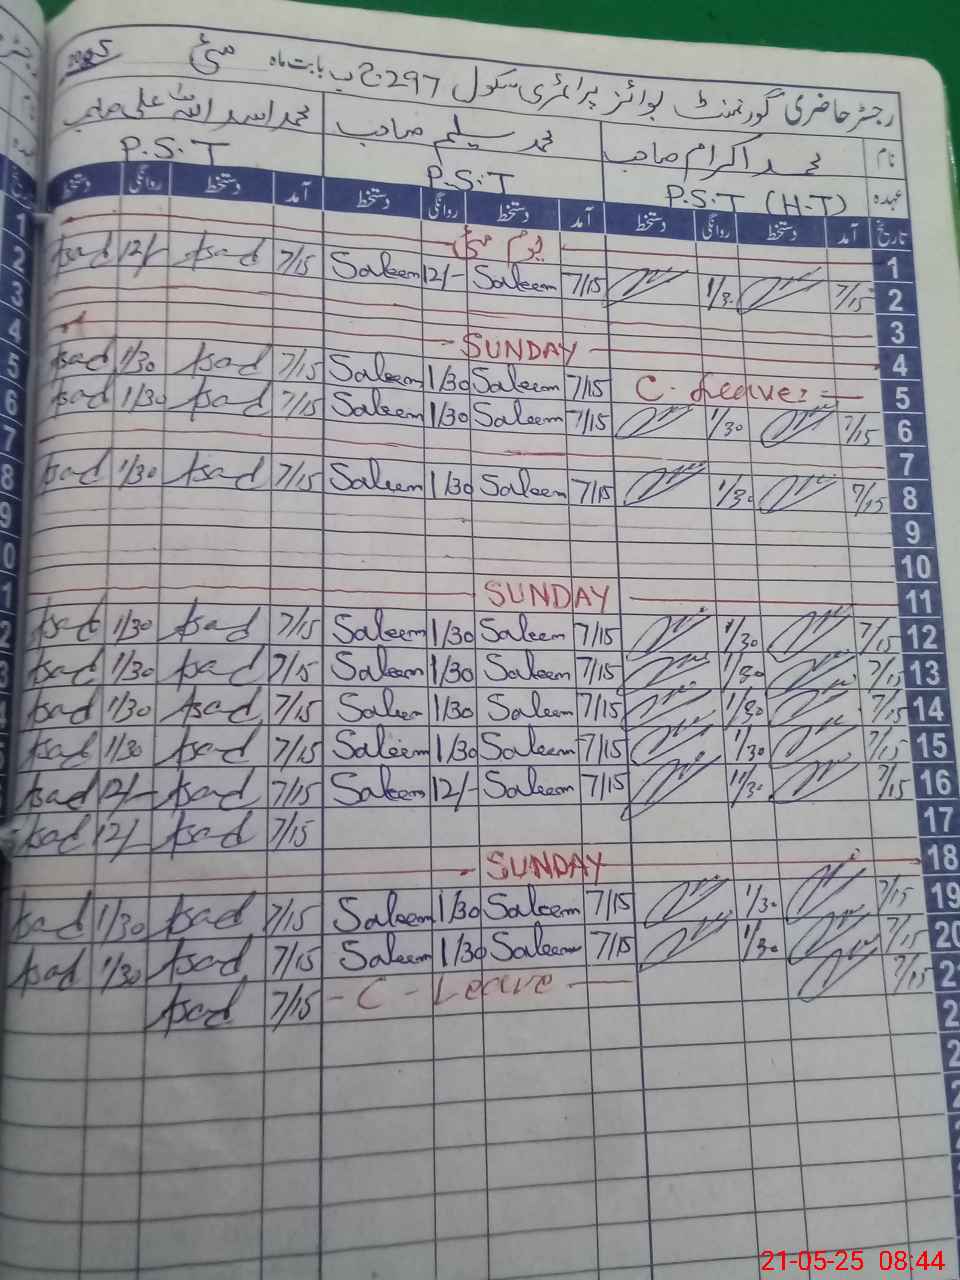 رجسٹر حاضری گورنمنٹ بوائز پرائمری سکول 297 ج ب بابت ماہ مئی 2025
نام محمد اکرام صاحب محمد سلیم صاحب محمد اسد اللہ علی صاحب
عہدہ P.S.T (H.T) P.S.T P.S.T
تاریخ آمد دستخط روانگی دستخط آمد دستخط روانگی دستخط آمد دستخط روانگی دستخط
1 یوم مئی
2 7/15 1/30 7/15 Saleem 12/- Saleem 7/15 Asad 12/- Asad
3
4 SUNDAY
5 C-Leave 7/15 Saleem 1/30 Saleem 7/15 Asad 1/30 Asad
6 7/15 1/30 7/15 Saleem 1/30 Saleem 7/15 Asad 1/30 Asad
7
8 7/15 1/30 7/15 Saleem 1/30 Saleem 7/15 Asad 1/30 Asad
9
10
11 SUNDAY
12 7/15 1/30 7/15 Saleem 1/30 Saleem 7/15 Asad 1/30 Asad
13 7/15 1/30 7/15 Saleem 1/30 Saleem 7/15 Asad 1/30 Asad
14 7/15 1/30 7/15 Saleem 1/30 Saleem 7/15 Asad 1/30 Asad
15 7/15 1/30 7/15 Saleem 1/30 Saleem 7/15 Asad 1/30 Asad
16 7/15 7/15 Saleem 12/- Saleem 7/15 Asad 12/- Asad
17 7/15 Asad 12/- Asad
18 SUNDAY
19 7/15 1/30 7/15 Saleem 1/30 Saleem 7/15 Asad 1/30 Asad
20 7/15 1/30 7/15 Saleem 1/30 Saleem 7/15 Asad 1/30 Asad
7/15 - C - Leave - 7/15 Asad
21-05-25 08:44